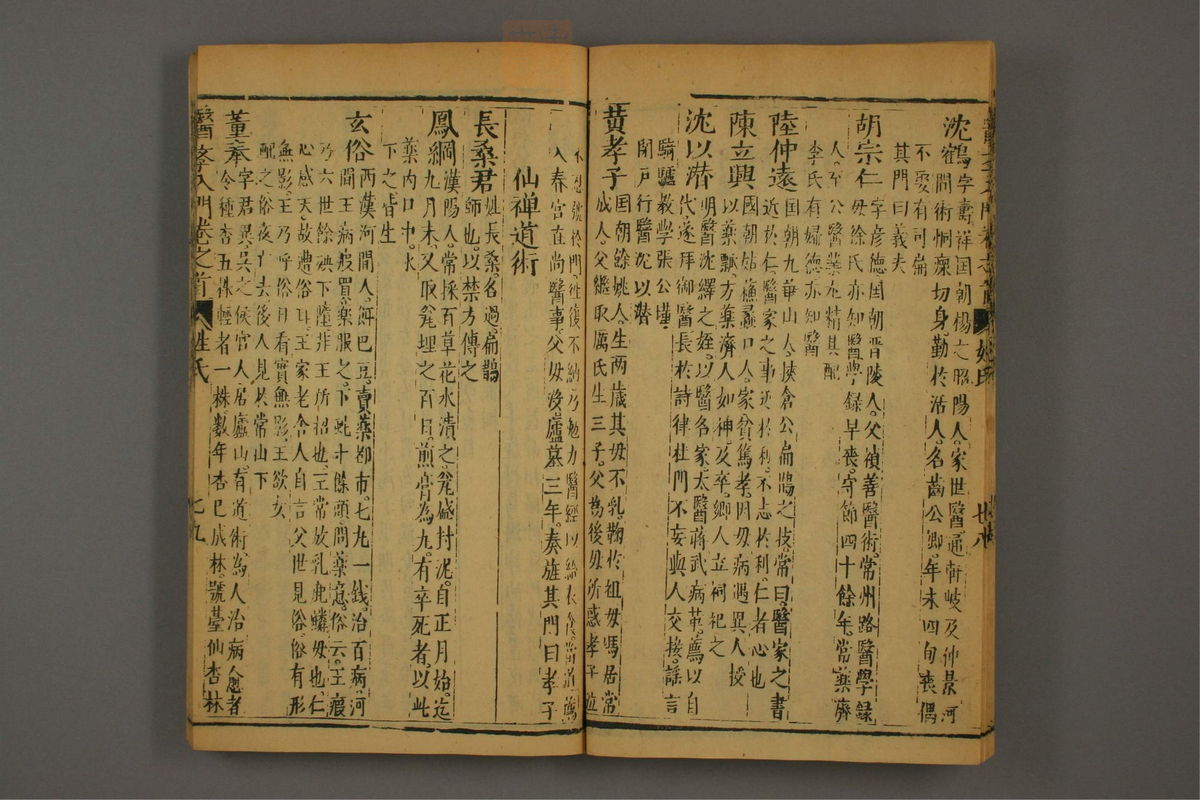 沈鶴字壽祥国朝楊之昭陽人家世醫通軒岐及仲景河
不娶有司崙
間術恫瘝切身勤於活人名齒公卿年未四旬喪偶
其門曰義夫
胡宗仁字彦德国朝晋陵人父禎善醫術常州路醫學錄
母徐氏亦知醫學録早喪守節四十餘年常藥濟
人至公醫藥尤精其配
李氏有婦德亦知醫
陸仲遠国朝九華山人挾倉公扁鵲之技常曰醫家之書
近於仁醫家之事近於利不志於利仁者心也
陳立興國朝姑蘓蠡口人家貧篤孝因母病遇異人授
以藥瓢方藥濟人如神及卒鄉人立祠祀之
沈以潛明醫沈繹之姪以醫名家太醫蒋武病革薦以自
代遂拜御醫長於詩律杜門不妄與人交接謡言
騎驢教學張公瑾
閉戸行醫沈以潛
黄孝子国朝餘姚人生兩歲其母不乳鞠於祖母馮居常
成人父繼取厲氏生三子父
後母所惑孝子
於門往復不納乃勉力醫經以
入春官直尚醫事父母沒廬墓三年奏旌其門曰孝子
仙禅道術
長桑君姓長桑名過扁鵲
師也以禁方傳之
鳳綱漢陽人常採百草花水漬之瓮盛封泥自正月始迄
九月末又取瓮埋之百日煎膏為九有卒死者以此
藥内口中水
下之皆生
玄俗兩漢河間人餌巴豆賣藥都市七九一銭治百病河
間王病瘕買藥服之下虵十餘頭問藥意俗云王瘕
乃六世餘殃下墮非王所招也王常放乳鹿麟母也仁
心感天故遭俗耳王家老舍人自言父世見俗俗有形
無影王乃呼俗日看實無影王欲女
配之俗夜亡去後人見於常山下
董奉字君異吳之候官人居廬山有道術為人治病愈者
令種杏五株輕者一株數年杏已成林號董仙杏林
醫孝入門卷之首
姓氏
七九